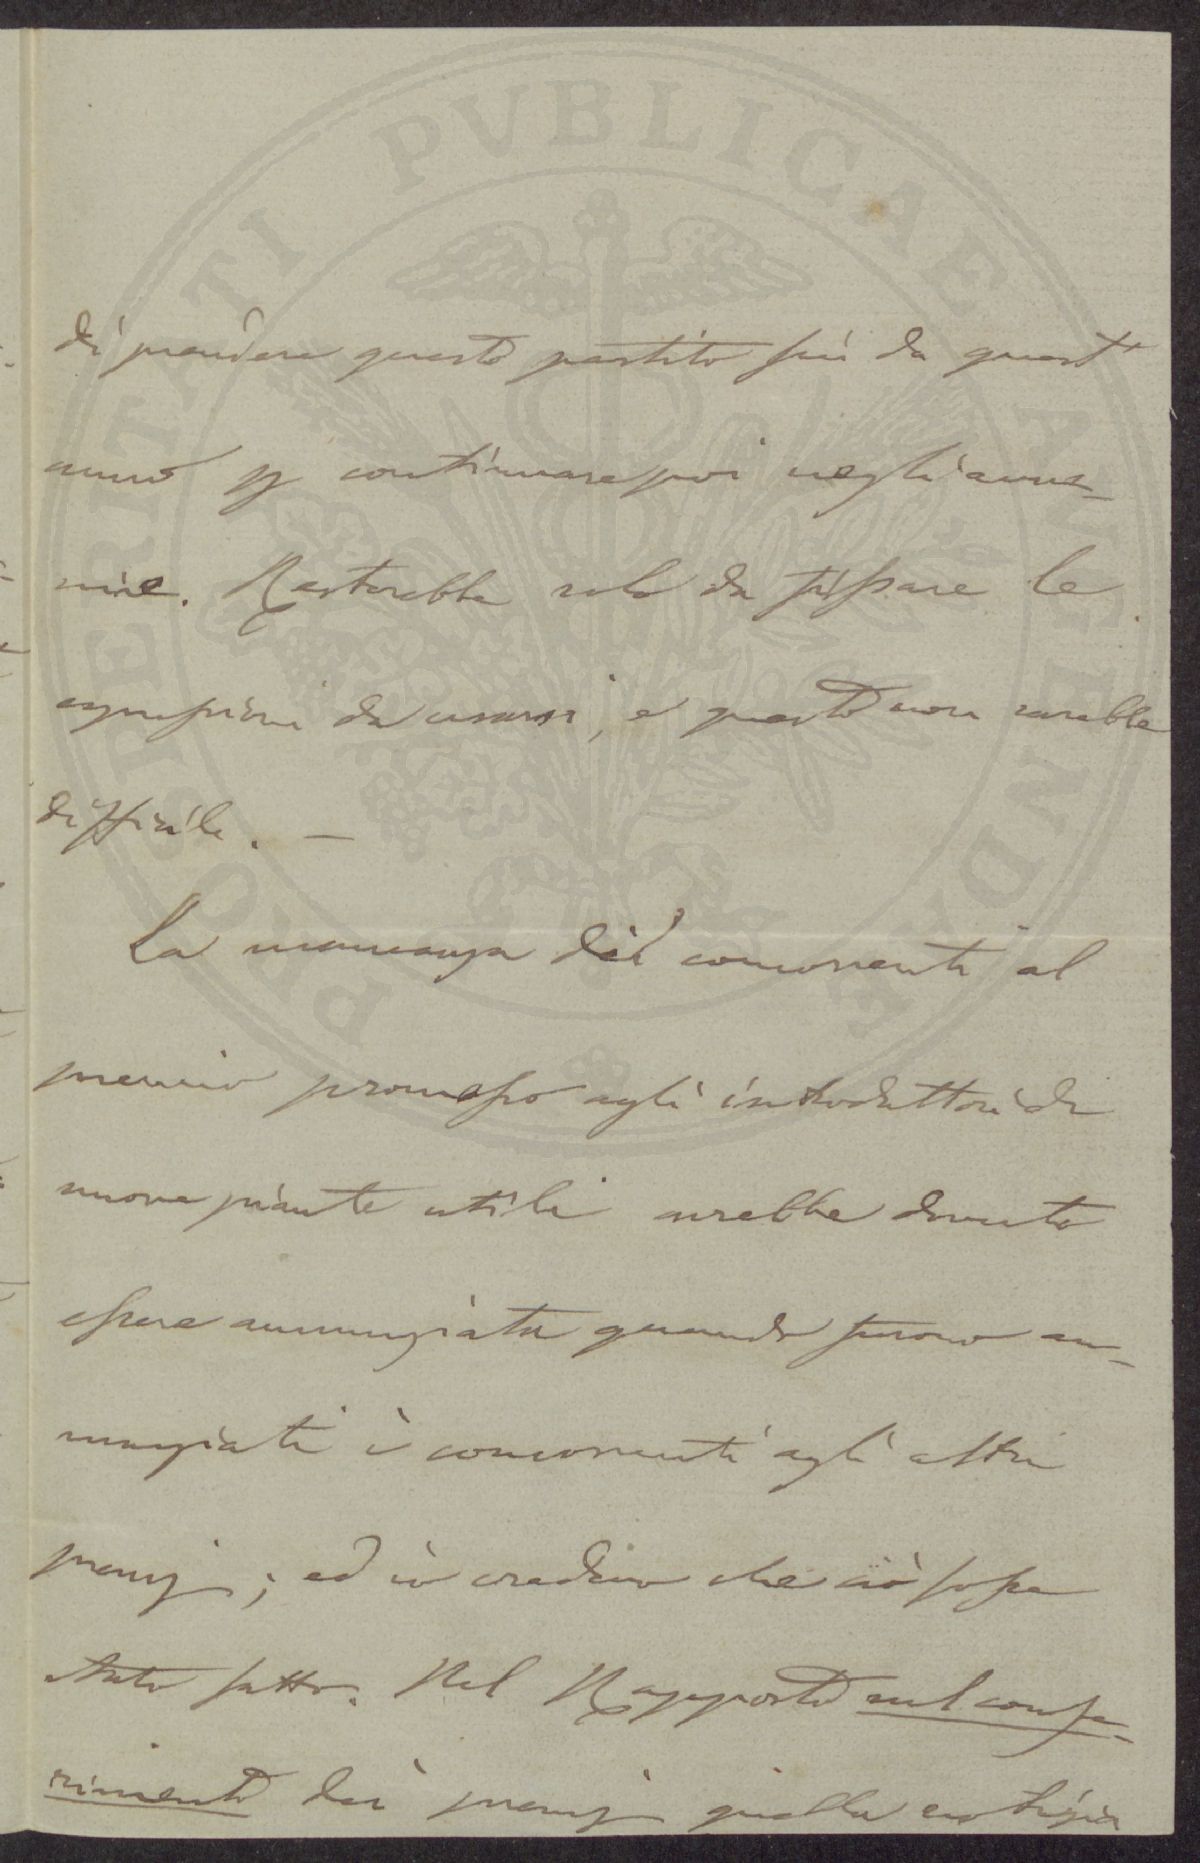 PROSPERITATI PUBLICAE AVGENDAE
di prendere questo partito fin da quest'
anno p continuare poi negli avve-
nire. Resterebbe solo da fissare le
espressioni da usarsi, e questo non sarebbe
difficile. —
La mancanza dei concorrenti al
premio promesso agli introduttori di
nuove piante utili avrebbe dovuto
essere annunziata quando furono an-
nunziati i concorrenti agli altri
premj; ed io credevo che ciò fosse
stato fatto. Nel Rapporto sul confe-
rimento dei premj quella notizia